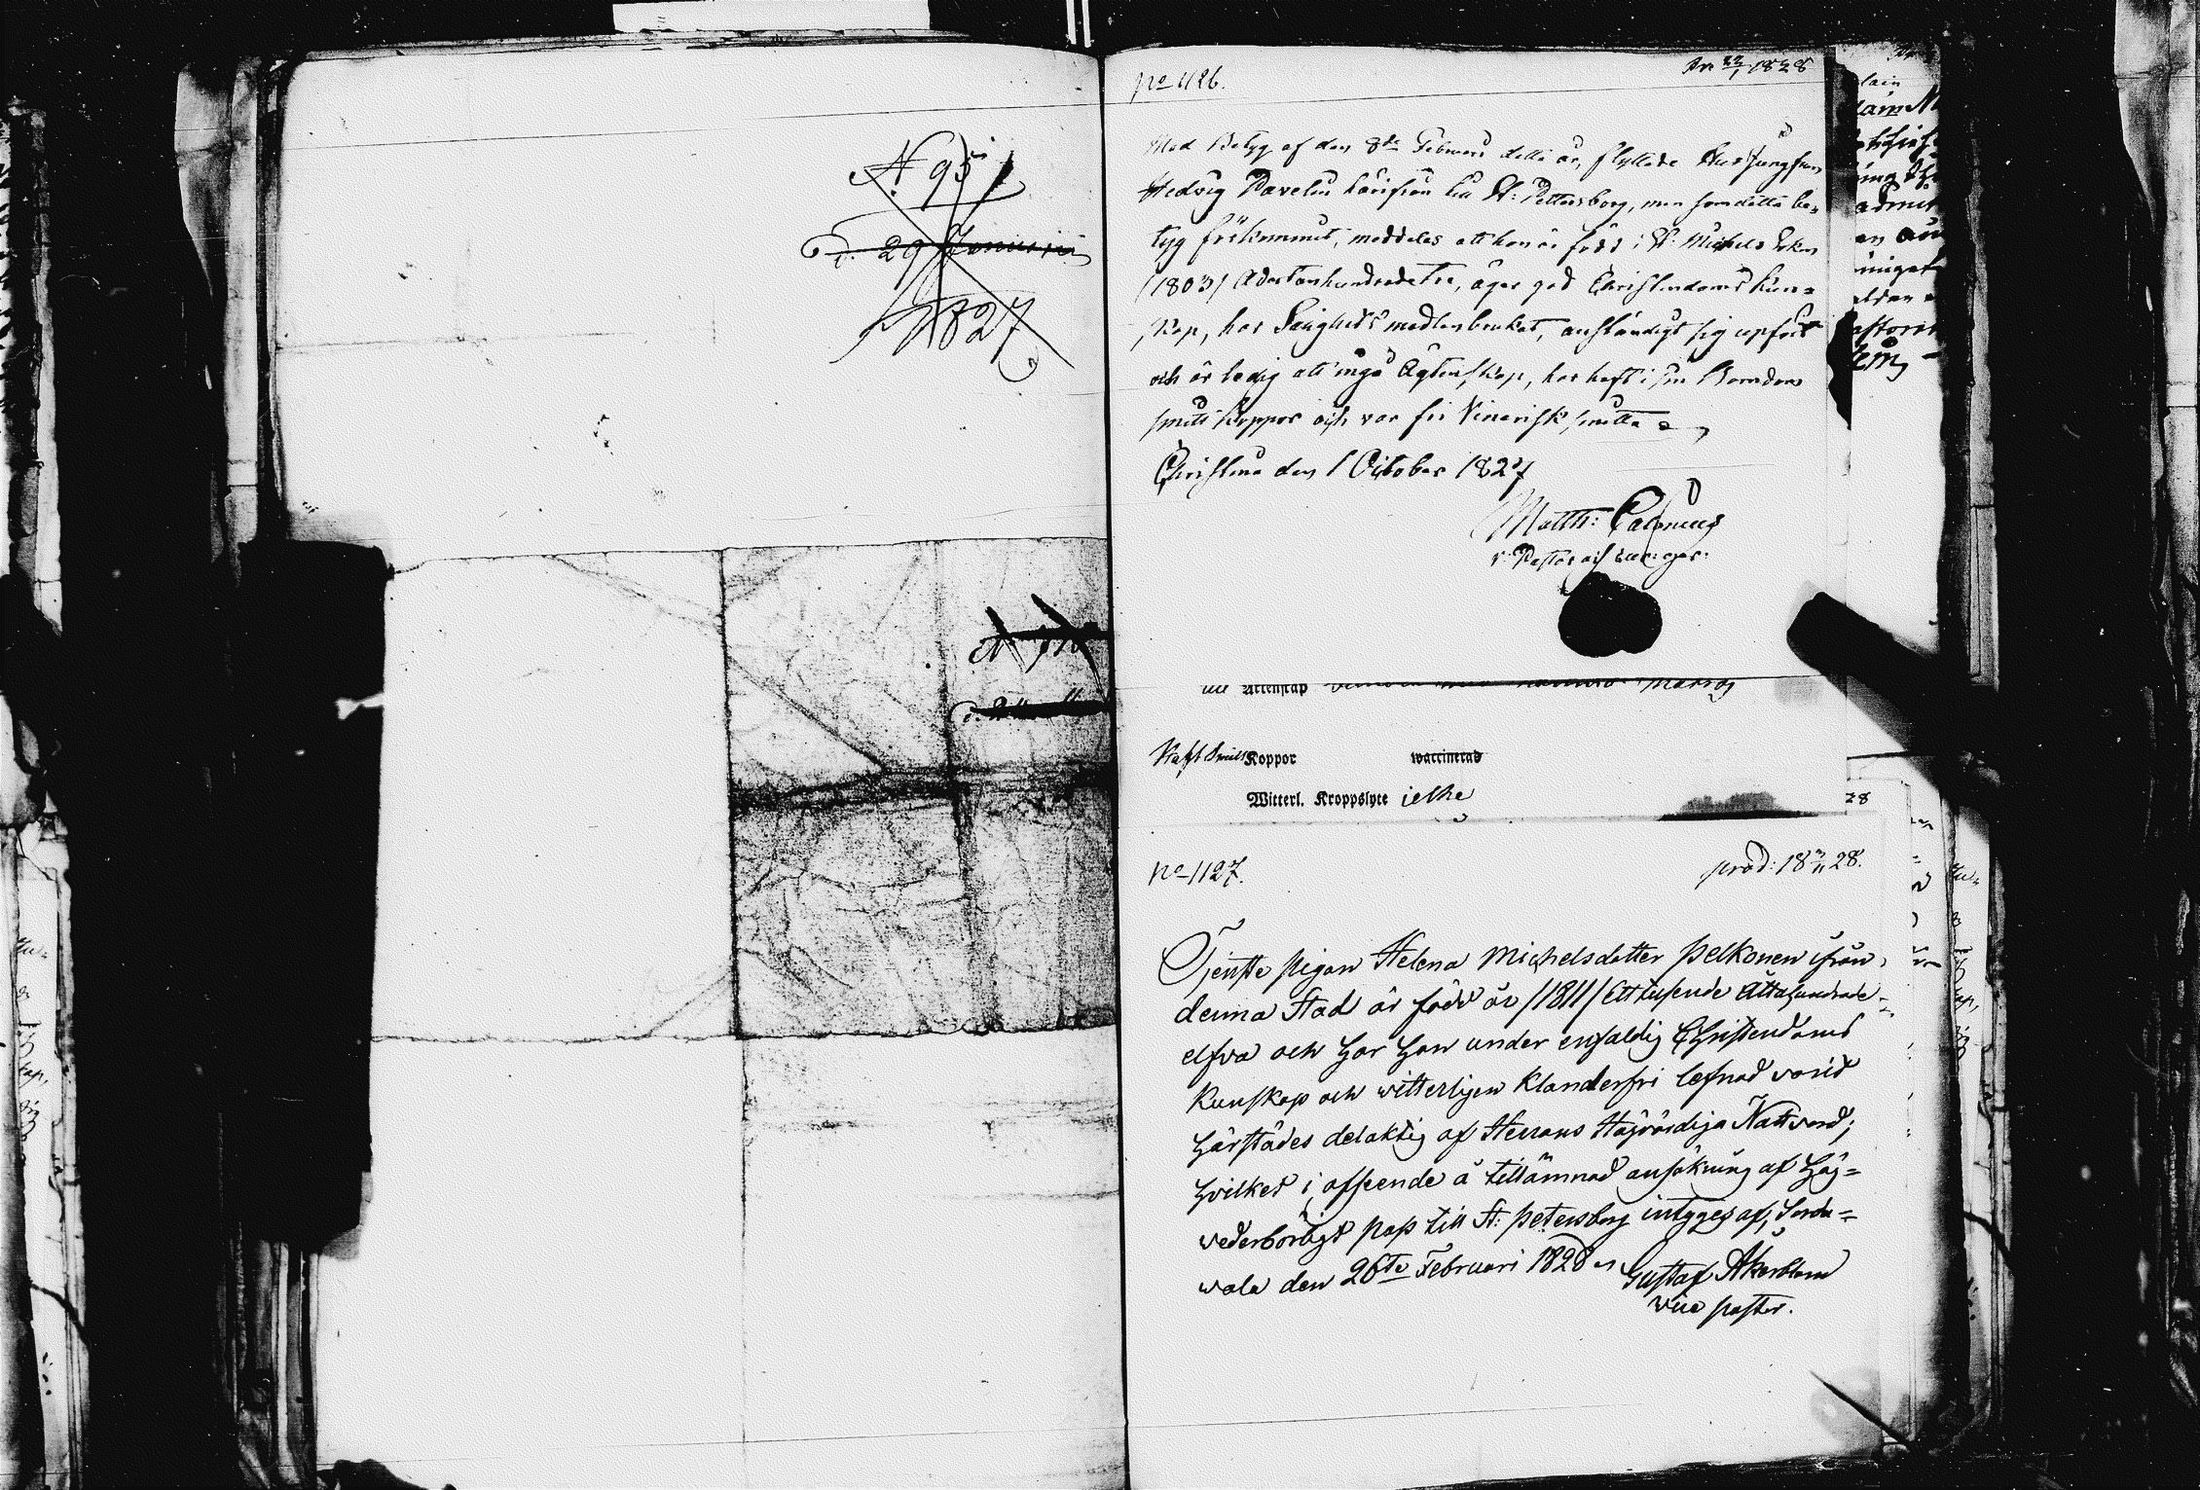 N. 95
d. 29 Januarii
1827
No 1126.
Pr. 22/1 1828
Med Betyg af den 8de Februarii detta år, flyttade Hus Jungfrun
Hedvig Pavelin härifrån till St: Pettersborg, men som detta be-
tyg förkommit, meddelas att hon är född i St: Michels Sokn
/1803/ Adertonhundradetre, äger god Christendoms kun-
skap, har Salighets medlen brukat, anständigt sig upfört
och är ledig att ingå Ägtenskap, har haft i sin Barndom
smitt koppor och var fri Venerisk smitta
Christina den 1 October 1827
Matth:
v. Pastor och
till Äktenskap
Haft Smitt Koppor waccinerad
Witterl. Kroppslyte icke
28
No 1127.
prod: 18 28.
Tjenste pigan Helena Michelsdotter Pelkonen ifrån
denna Stad är född år /1811/ Ett tusende Åttahundrade-
elfva och har hon under enfaldig Christendoms
Kunskap och witterligen klanderfri lefnad varit
härstädes delaktig af Herrans Högvördiga Nattvard;
hvilket i afseende å tillämnad ansökning af Hög-
vederbörligt pass till St: Petersborg intygges af, Sorda-
wala den 26te Februari 1828 Gustaf Åkerblom
vice pastor.